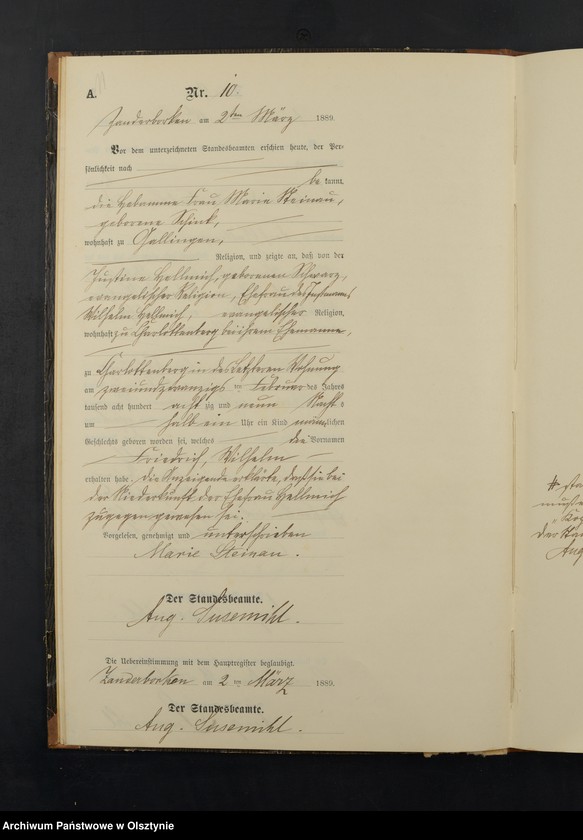 A.
Nr. 10.
Zanderborken am 2ten März 1889.
Vor dem unterzeichneten Standesbeamten erschien heute, der Per-
sönlichkeit nach
be kannt,
die Hebamme Frau Maria Steinau,
geborene Schink,
wohnhaft zu Gallingen,
Religion, und zeigte an, daß von der
Justine Hellmich, geborenen Schwarz,
evangelischer Religion, Ehefrau des Instmanns
Wilhelm Hellmich, evangelischer Religion,
wohnhaft zu Charlottenberg bei ihrem Ehemanne,
zu Charlottenberg in des Letzteren Wohnung
am zweiundzwanzigs ten Februar des Jahres
tausend acht hundert acht zig und neun Nachts
um halb ein Uhr ein Kind männlichen
Geschlechts geboren worden sei, welches die Vornamen
Friedrich, Wilhelm
erhalten habe. Die Anzeigende erklärte, daß sie bei
der Niederkunft der Ehefrau Hellmich
zugegen gewesen sei.
Vorgelesen, genehmigt und unterschrieben
Marie Steinau.
Der Standesbeamte.
Aug. Susemihl.
Die Uebereinstimmung mit dem Hauptregister beglaubigt.
Zanderborken am 2 ten März 1889.
Der Standesbeamte.
Aug. Susemihl.
Archiwum Państwowe w Olsztynie